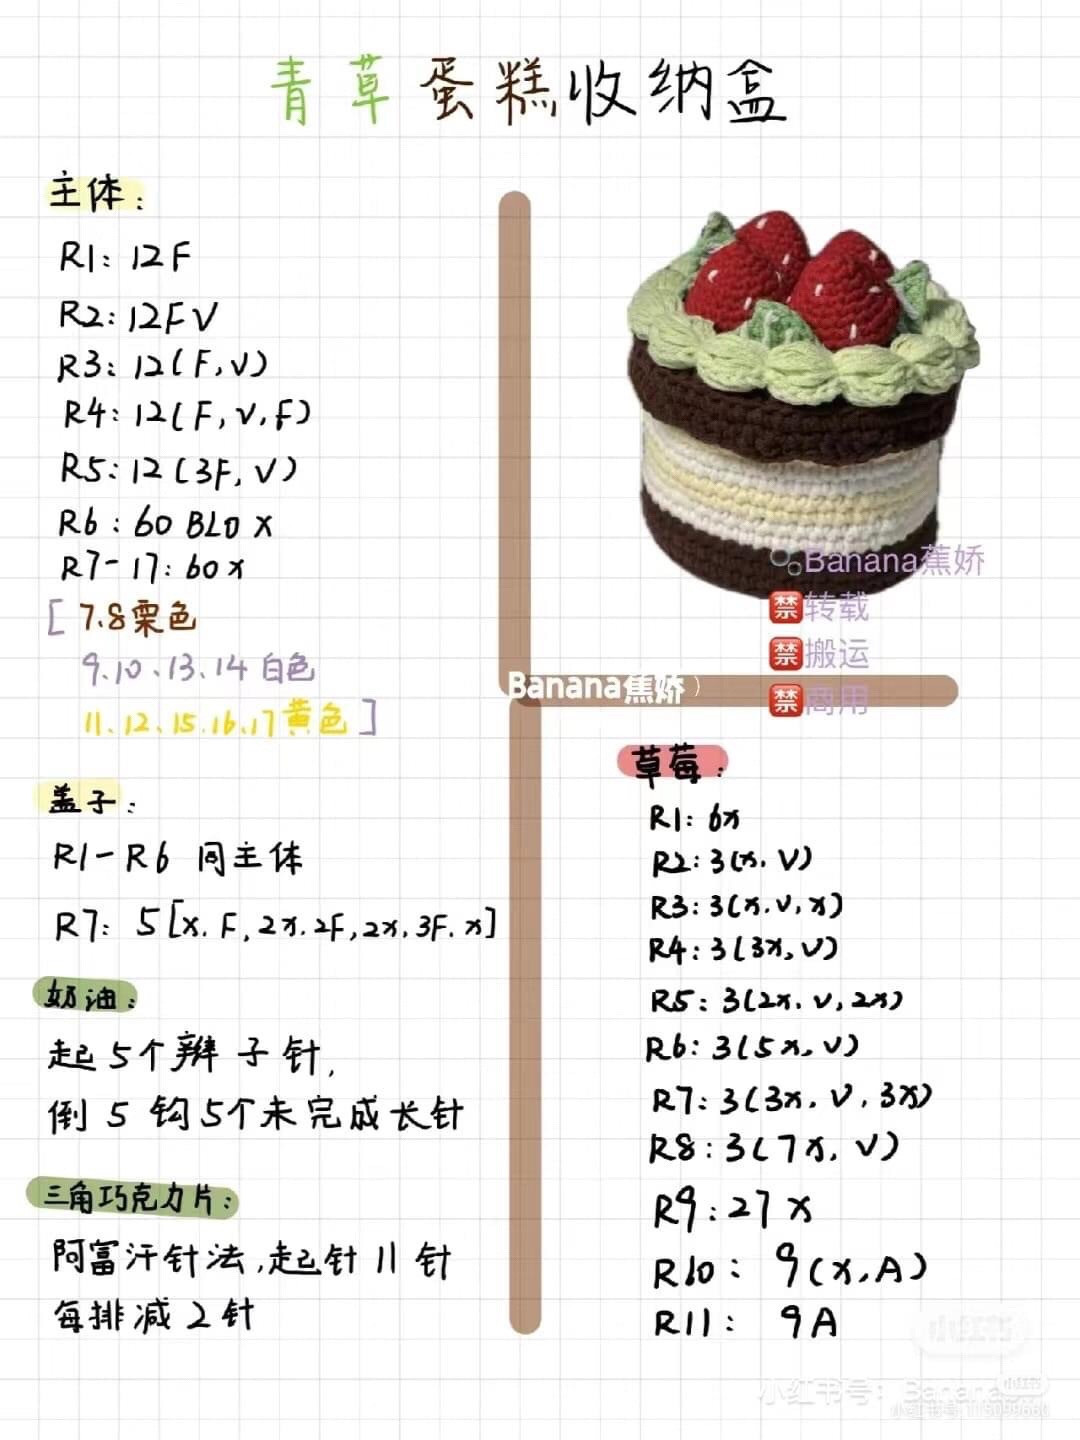 青草蛋糕收纳盒
主体:
R1: 12F
R2: 12FV
R3: 12(F,V)
R4: 12(F,V,F)
R5: 12(3F,V)
R6: 60 BLO X
R7-17: 60x
[ 7.8栗色
9.10、13、14 白色
11、12、15.16、17黄色 ]
盖子:
R1-R6 同主体
R7: 5[x.F,2x.2F,2x.3F.x]
奶油:
起5个辫子针,
倒5钩5个未完成长针
三角巧克力片:
阿富汗针法,起针11针
每排减2针
Banana蕉娇
禁转载
禁搬运
禁商用
Banana蕉娇
草莓:
R1: 6x
R2: 3(x.V)
R3: 3(x.V,x)
R4: 3(3x,V)
R5: 3(2x.V,2x)
R6: 3(5x,V)
R7: 3(3x.V,3x)
R8: 3(7x,V)
R9: 27x
R10: 9(x,A)
R11: 9A
小红书
小红书号: Banana
小红书
小红书号: